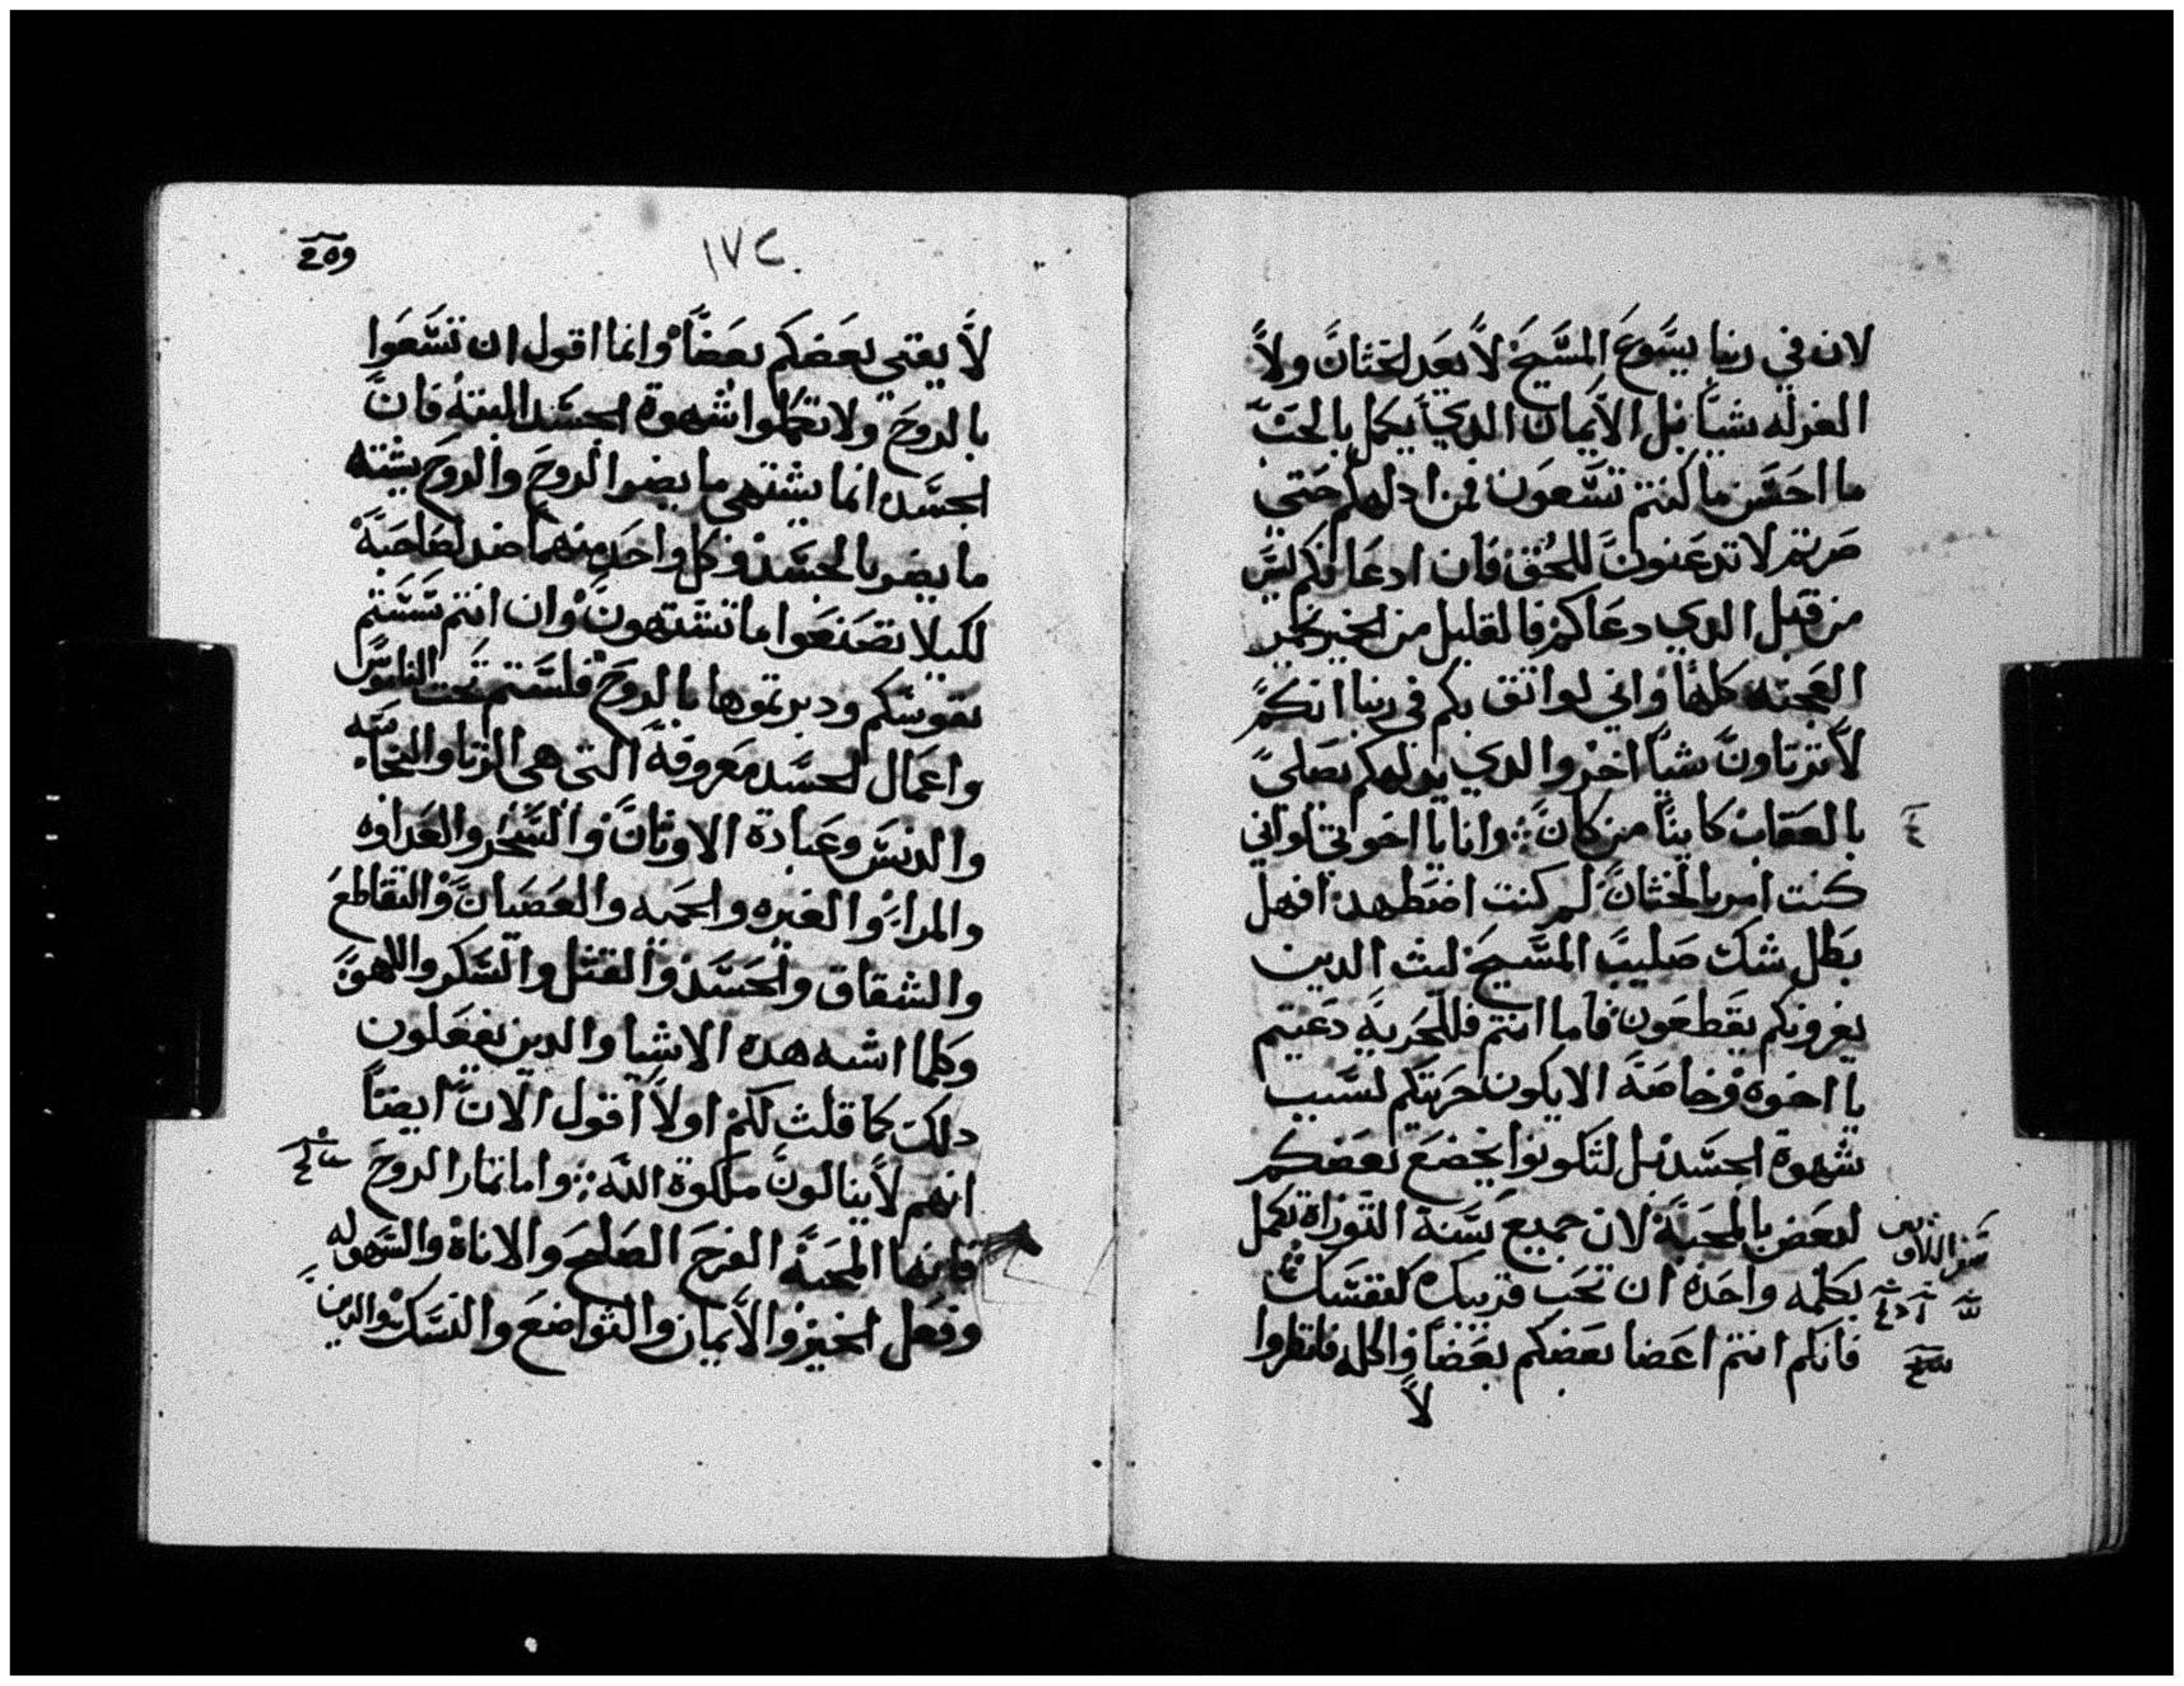 لان في ربنا يسوع المسيح لا يعد الختان ولا
الغرله شيا بل الايمان الدي يكمل بالحب
ما احسن ما كنتم تسعون فمن ادلهكم حتي
صرتم لا تدعنون للحق فان ادعافكم ليس
من قبل الدي دعاكم فالقليل من الخير يخمر
العجنه كلها واني لواثق بكم في ربنا انكم
لا ترتاون شيا اخر والدي يدلهكم يصلي
بالعقاب كاينا من كان ⁘ وانا يا اخوتي لو اني
كنت امر بالختان لم كنت اضطهد افهل
بطل شك صليب المسيح ليث الدين
يغرونكم يقطعون فاما انتم فللحريه دعيتم
يا اخوه وخاصة الا يكون حريتكم لسبب
شهوة الجسد بل لتكونوا يخضع بعضكم
لبعض بالمحبة لان جميع سنة التوراة تكمل
بكلمه واحدة ان تحب قريبك كنفسك
فانكم انتم اعضا بعضكم بعضا واكله فانظروا
لا
١٧٢
لا يفني بعضكم بعضا وانما اقول ان تسعوا
بالروح ولا تكملوا شهوة الجسد البته فان
الجسد انما يشتهي ما يضر الروح والروح يشته
ما يضر بالجسد وكل واحد منهما ضد لصاحبة
لكيلا تصنعوا ما تشتهون وان انتم سستم
نفوسكم ودبرتموها بالروح فلستم تحت الناموس
واعمال الجسد معروفة التي هي الزنا والنجاسه
والدنس وعبادة الاوثان والسحر والعداوه
والمرا والغيره والحميه والعصيان والتقاطع
والشقاق والحسد والقتل والسكر واللهو
وكلما اشبه هده الاشيا والدين يفعلون
دلك كما قلت لكم اولا اقول الان ايضا
انهم لا ينالون ملكوة الله ⁘ واما ثمار الروح
فانها المحبة الفرح الصلح والاناة والسهوله
وفعل الخير والايمان والتواضع والنسك والدين